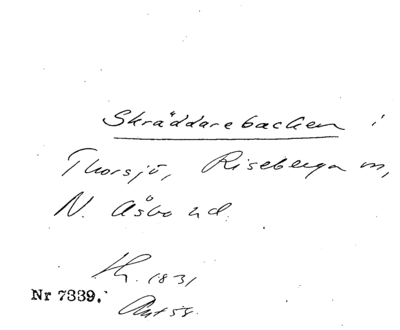 Skräddarebacken i
Thorsjö, Riseberga sn,
N. Åsbo hd.
1831
Nr 7339.